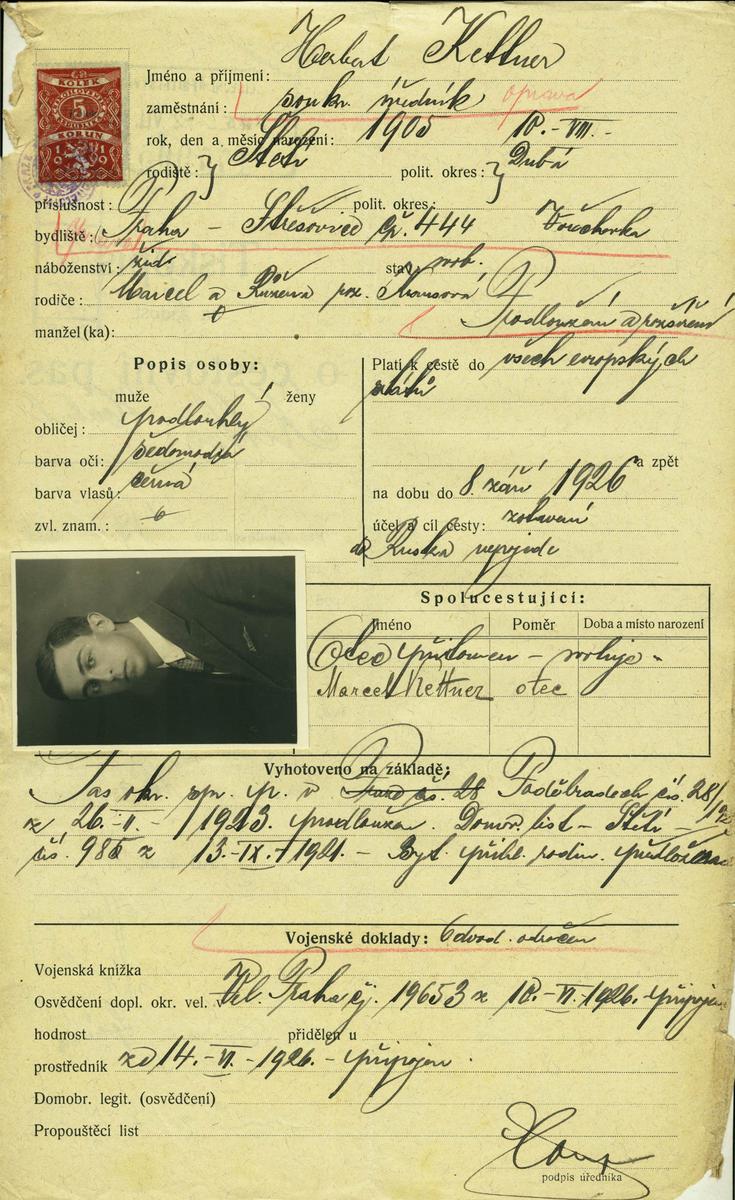 Herbert Kettner
KOLEK
5
KORUN
1919
Jméno a příjmení:
zaměstnání: soukr. úředník oprava
rok, den a měsíc narození: 1905 18.-VIII.-
rodiště: Štětí polit. okres: Dubá
příslušnost: polit. okres:
bydliště: Praha - Střešovice čp. 444
náboženství: žid. stav: svob.
rodiče: Marcel a Růžena roz. Krausová
manžel(ka): Prodloužení a rozšíření
Popis osoby:
Platí k cestě do všech evropských
států
muže ženy
obličej: podlouhlý
barva očí: šedomodrá
barva vlasů: černá
zvl. znam.:
a zpět
na dobu do 8. září 1926
účel a cíl cesty: zotavení
do Ruska nepojede
Spolucestující:
Jméno Poměr Doba a místo narození
Otec přítomen - svoluje -
Marcel Kettner otec
Vyhotoveno na základě:
Pas okr. spr. p. v Poděbradech čís. 28/
z 26.-II.- 1923 prodloužen. Domov. list - Štětí -
čís. 985 z 13.-IX.-1921.- Byt. přihl. rodin.
Vojenské doklady: Odvod. odročen
Vojenská knížka
Osvědčení dopl. okr. vel. Praha čj. 19653 z 18.-VI.-1926. připojen
hodnost přidělen u
prostředník zd 14.-VI.-1926.- připojen.
Domobr. legit. (osvědčení)
Propouštěcí list
podpis úředníka